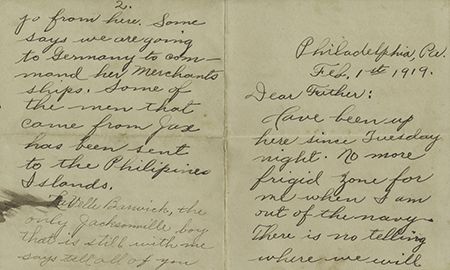 Philadelphia, Pa.
Feb, 1st 1919.
Dear Father:
Have been up
here since Tuesday
night. No more
frigid zone for
me when I am
out of the navy.
There is no telling
where we will
2.
go from here. Some
says we are going
to Germany to com-
mand her Merchants
ships. Some of
the men that
came from Jax
has been sent
to the Philipines
Islands.
Ville Barwick, the
only Jacksonville boy
that is still with me
says tell all of you